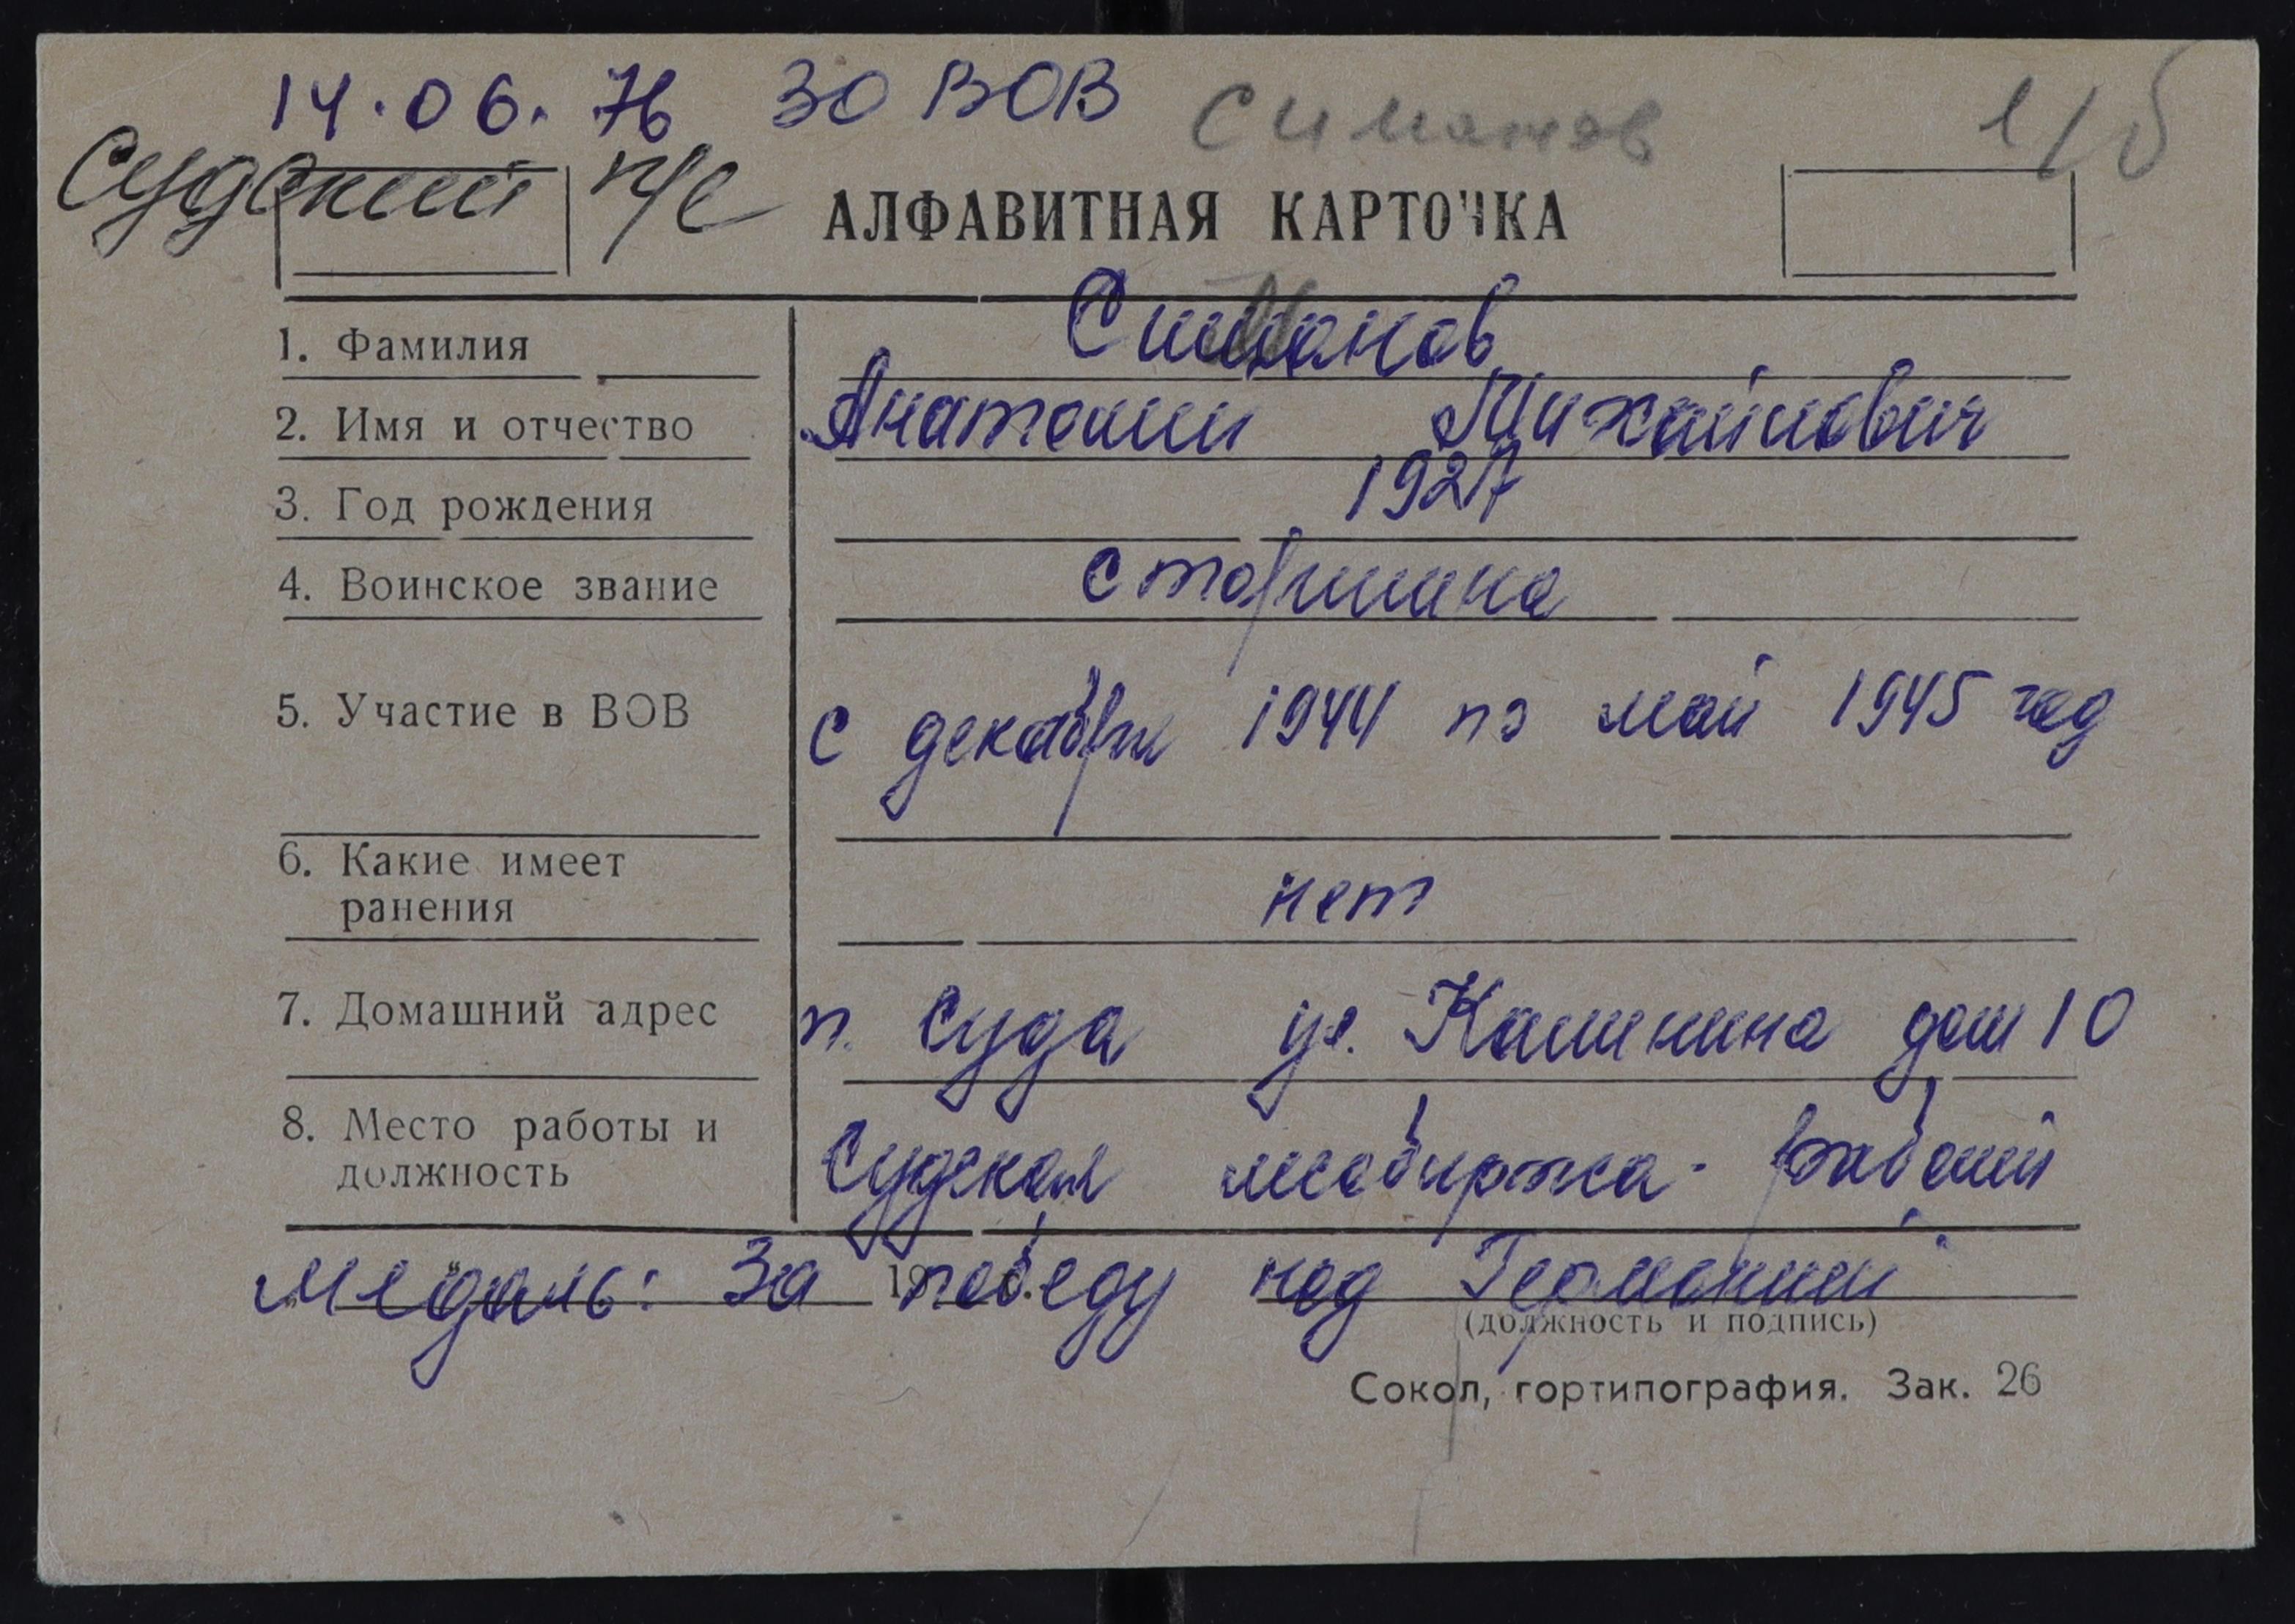 14.06.76 30 ВОВ Симанов 1/б
Судский п/с
АЛФАВИТНАЯ КАРТОЧКА
1. Фамилия Симанов
2. Имя и отчество Анатолий Михайлович
3. Год рождения 1927
4. Воинское звание старшина
5. Участие в ВОВ с декабря 1944 по май 1945 год
6. Какие имеет
ранения нет
7. Домашний адрес п. Суда ул. Калинина дом 10
8. Место работы и
должность Судская лесобиржа - рабочий
медаль: За 19 победу над Германией
(должность и подпись)
Сокол, гортипография. Зак. 26